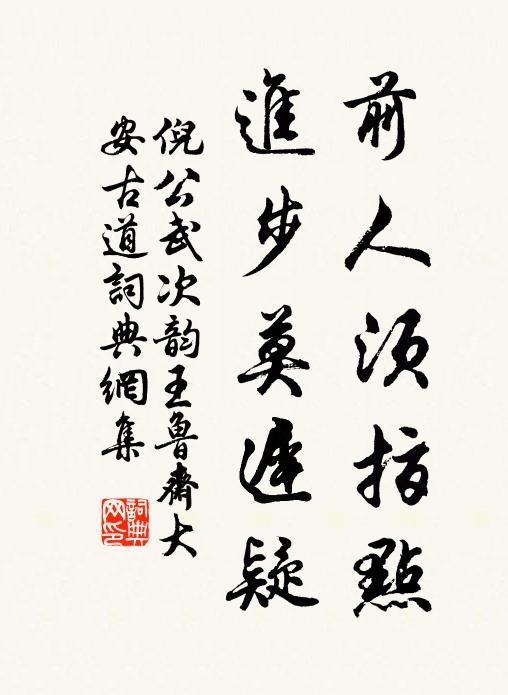 前人须指點
進步莫遲疑
倪公武次韵王魯齋大
安古道詞典網集
詞典
网印